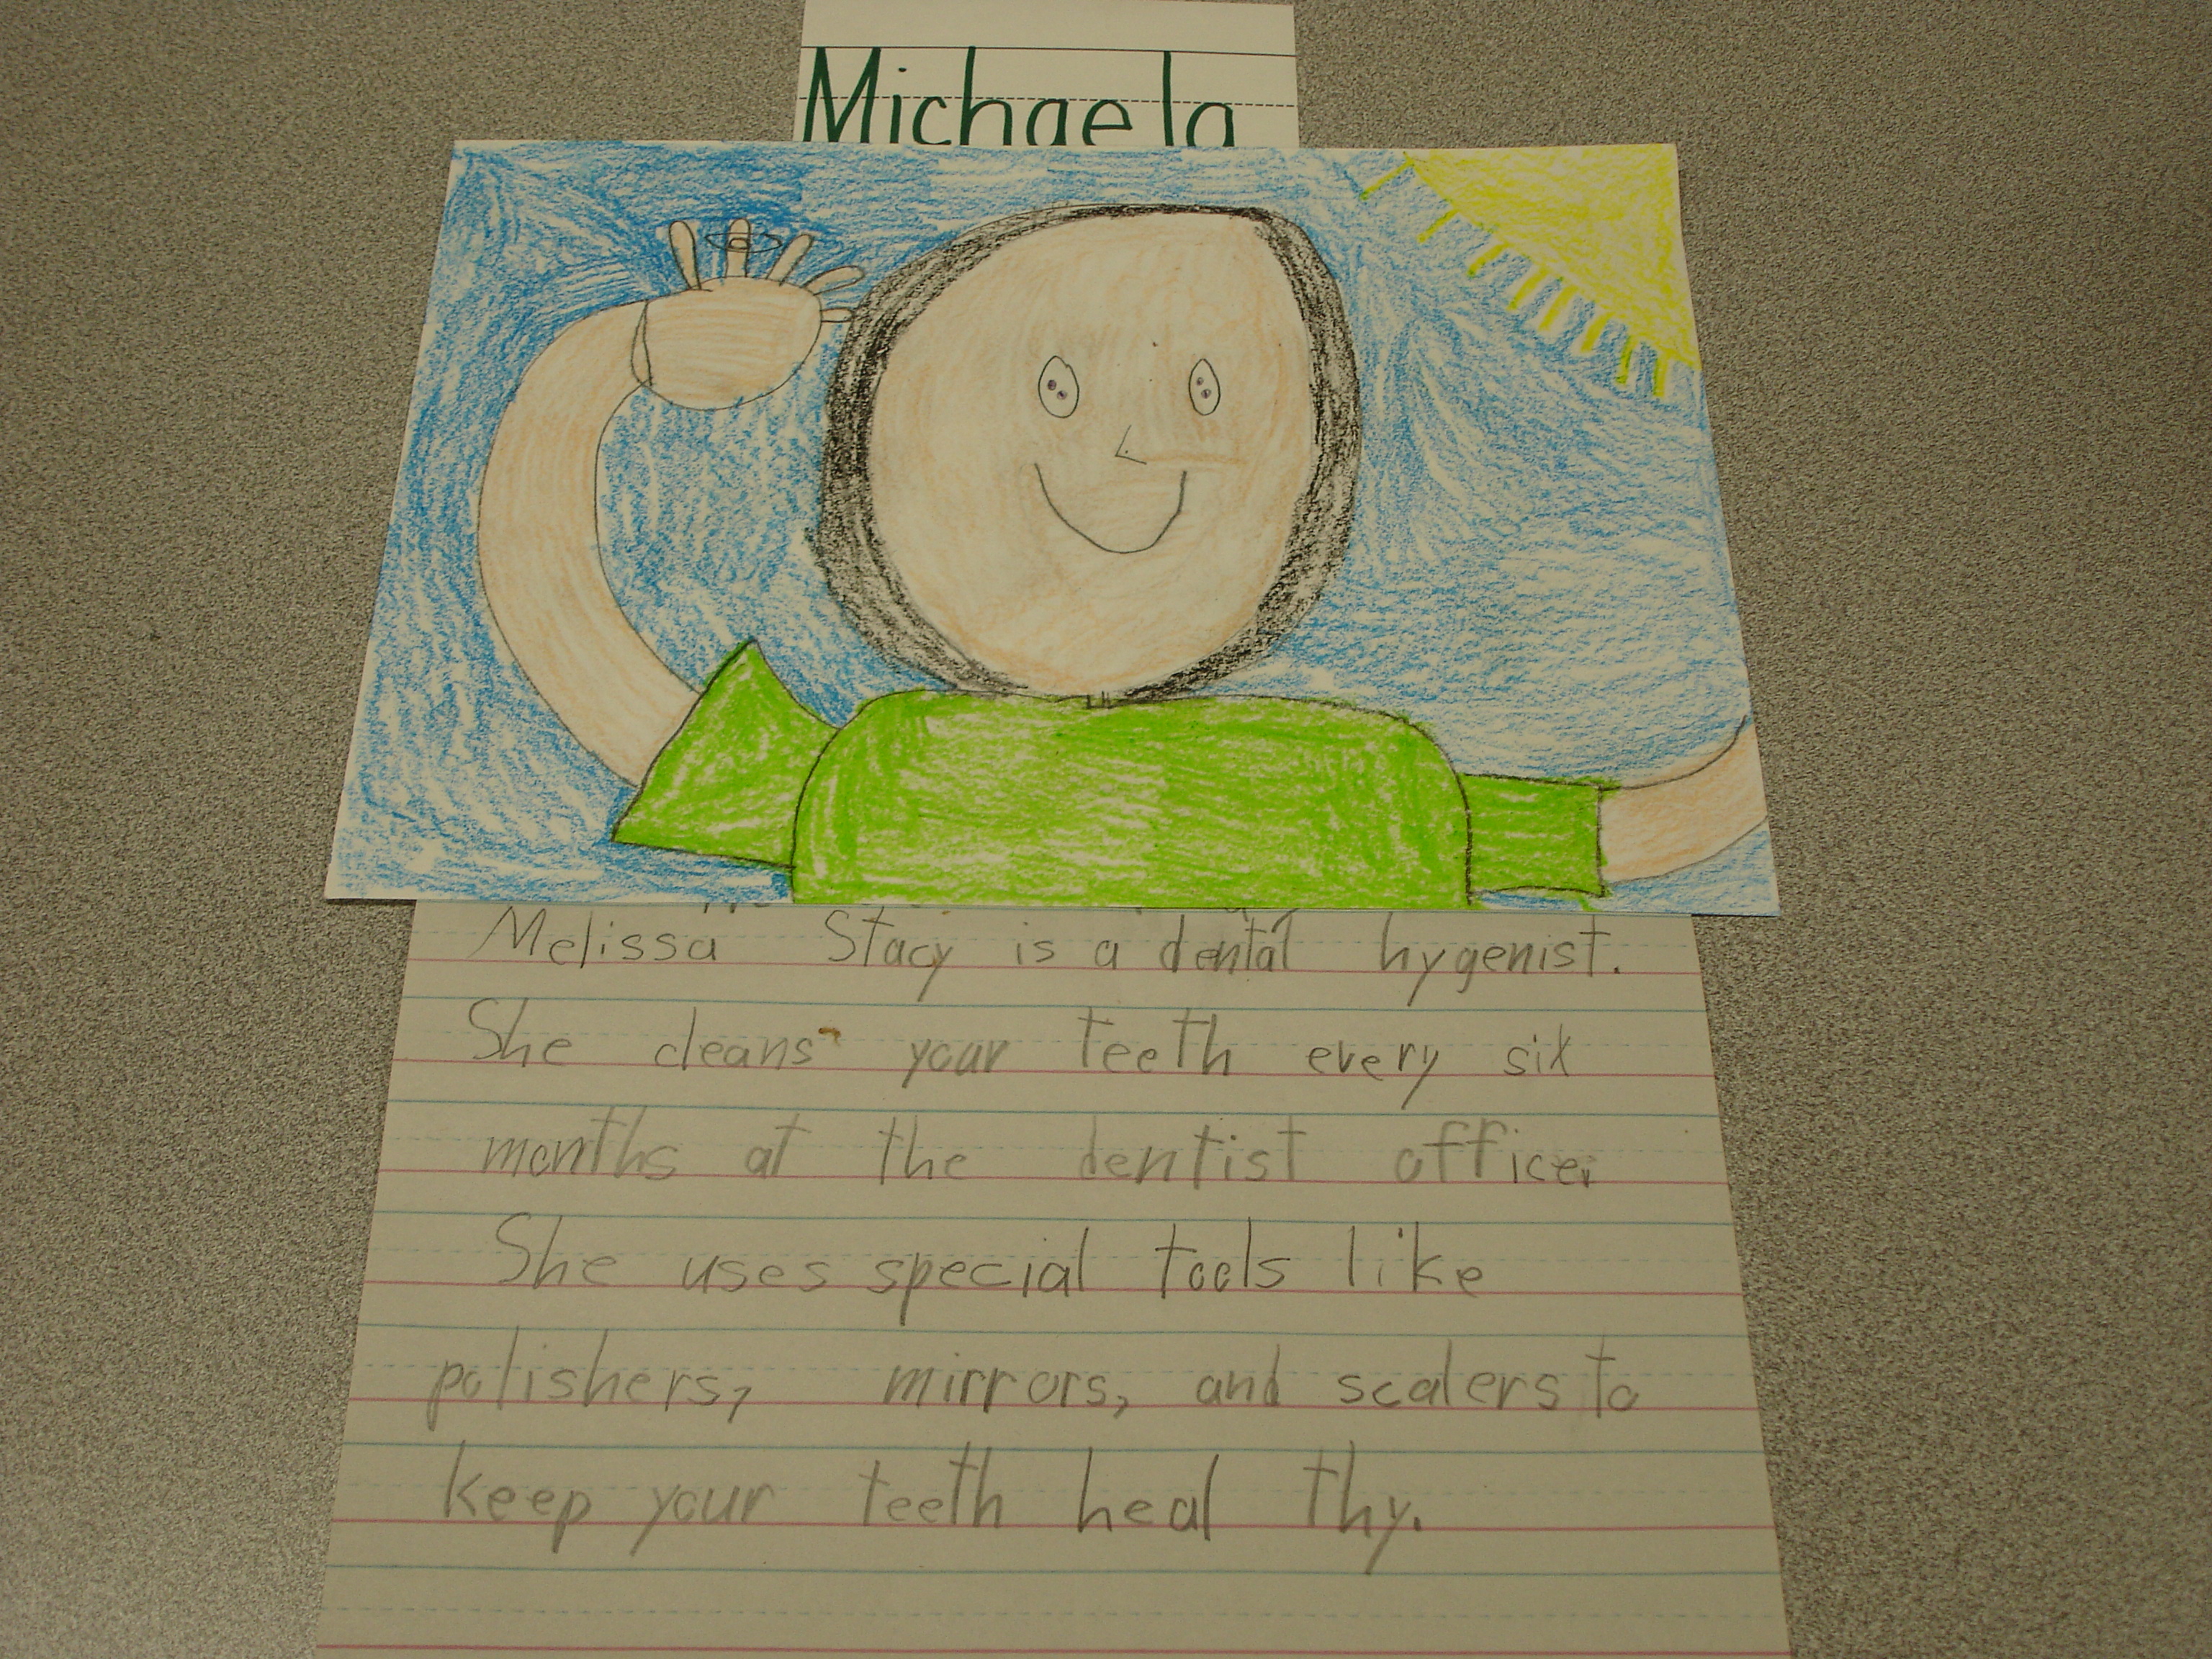 Michaela
Melissa Stacy is a dental hygenist.
She cleans your teeth every six
months at the dentist office.
She uses special tools like
polishers, mirrors, and scalers to
keep your teeth heal thy.